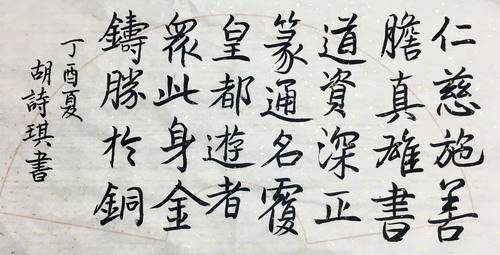 仁慈施善
膽真雄書
道資深正
篆通名覆
皇都遊者
眾此身金
鑄勝於銅
丁酉夏
胡詩琪書